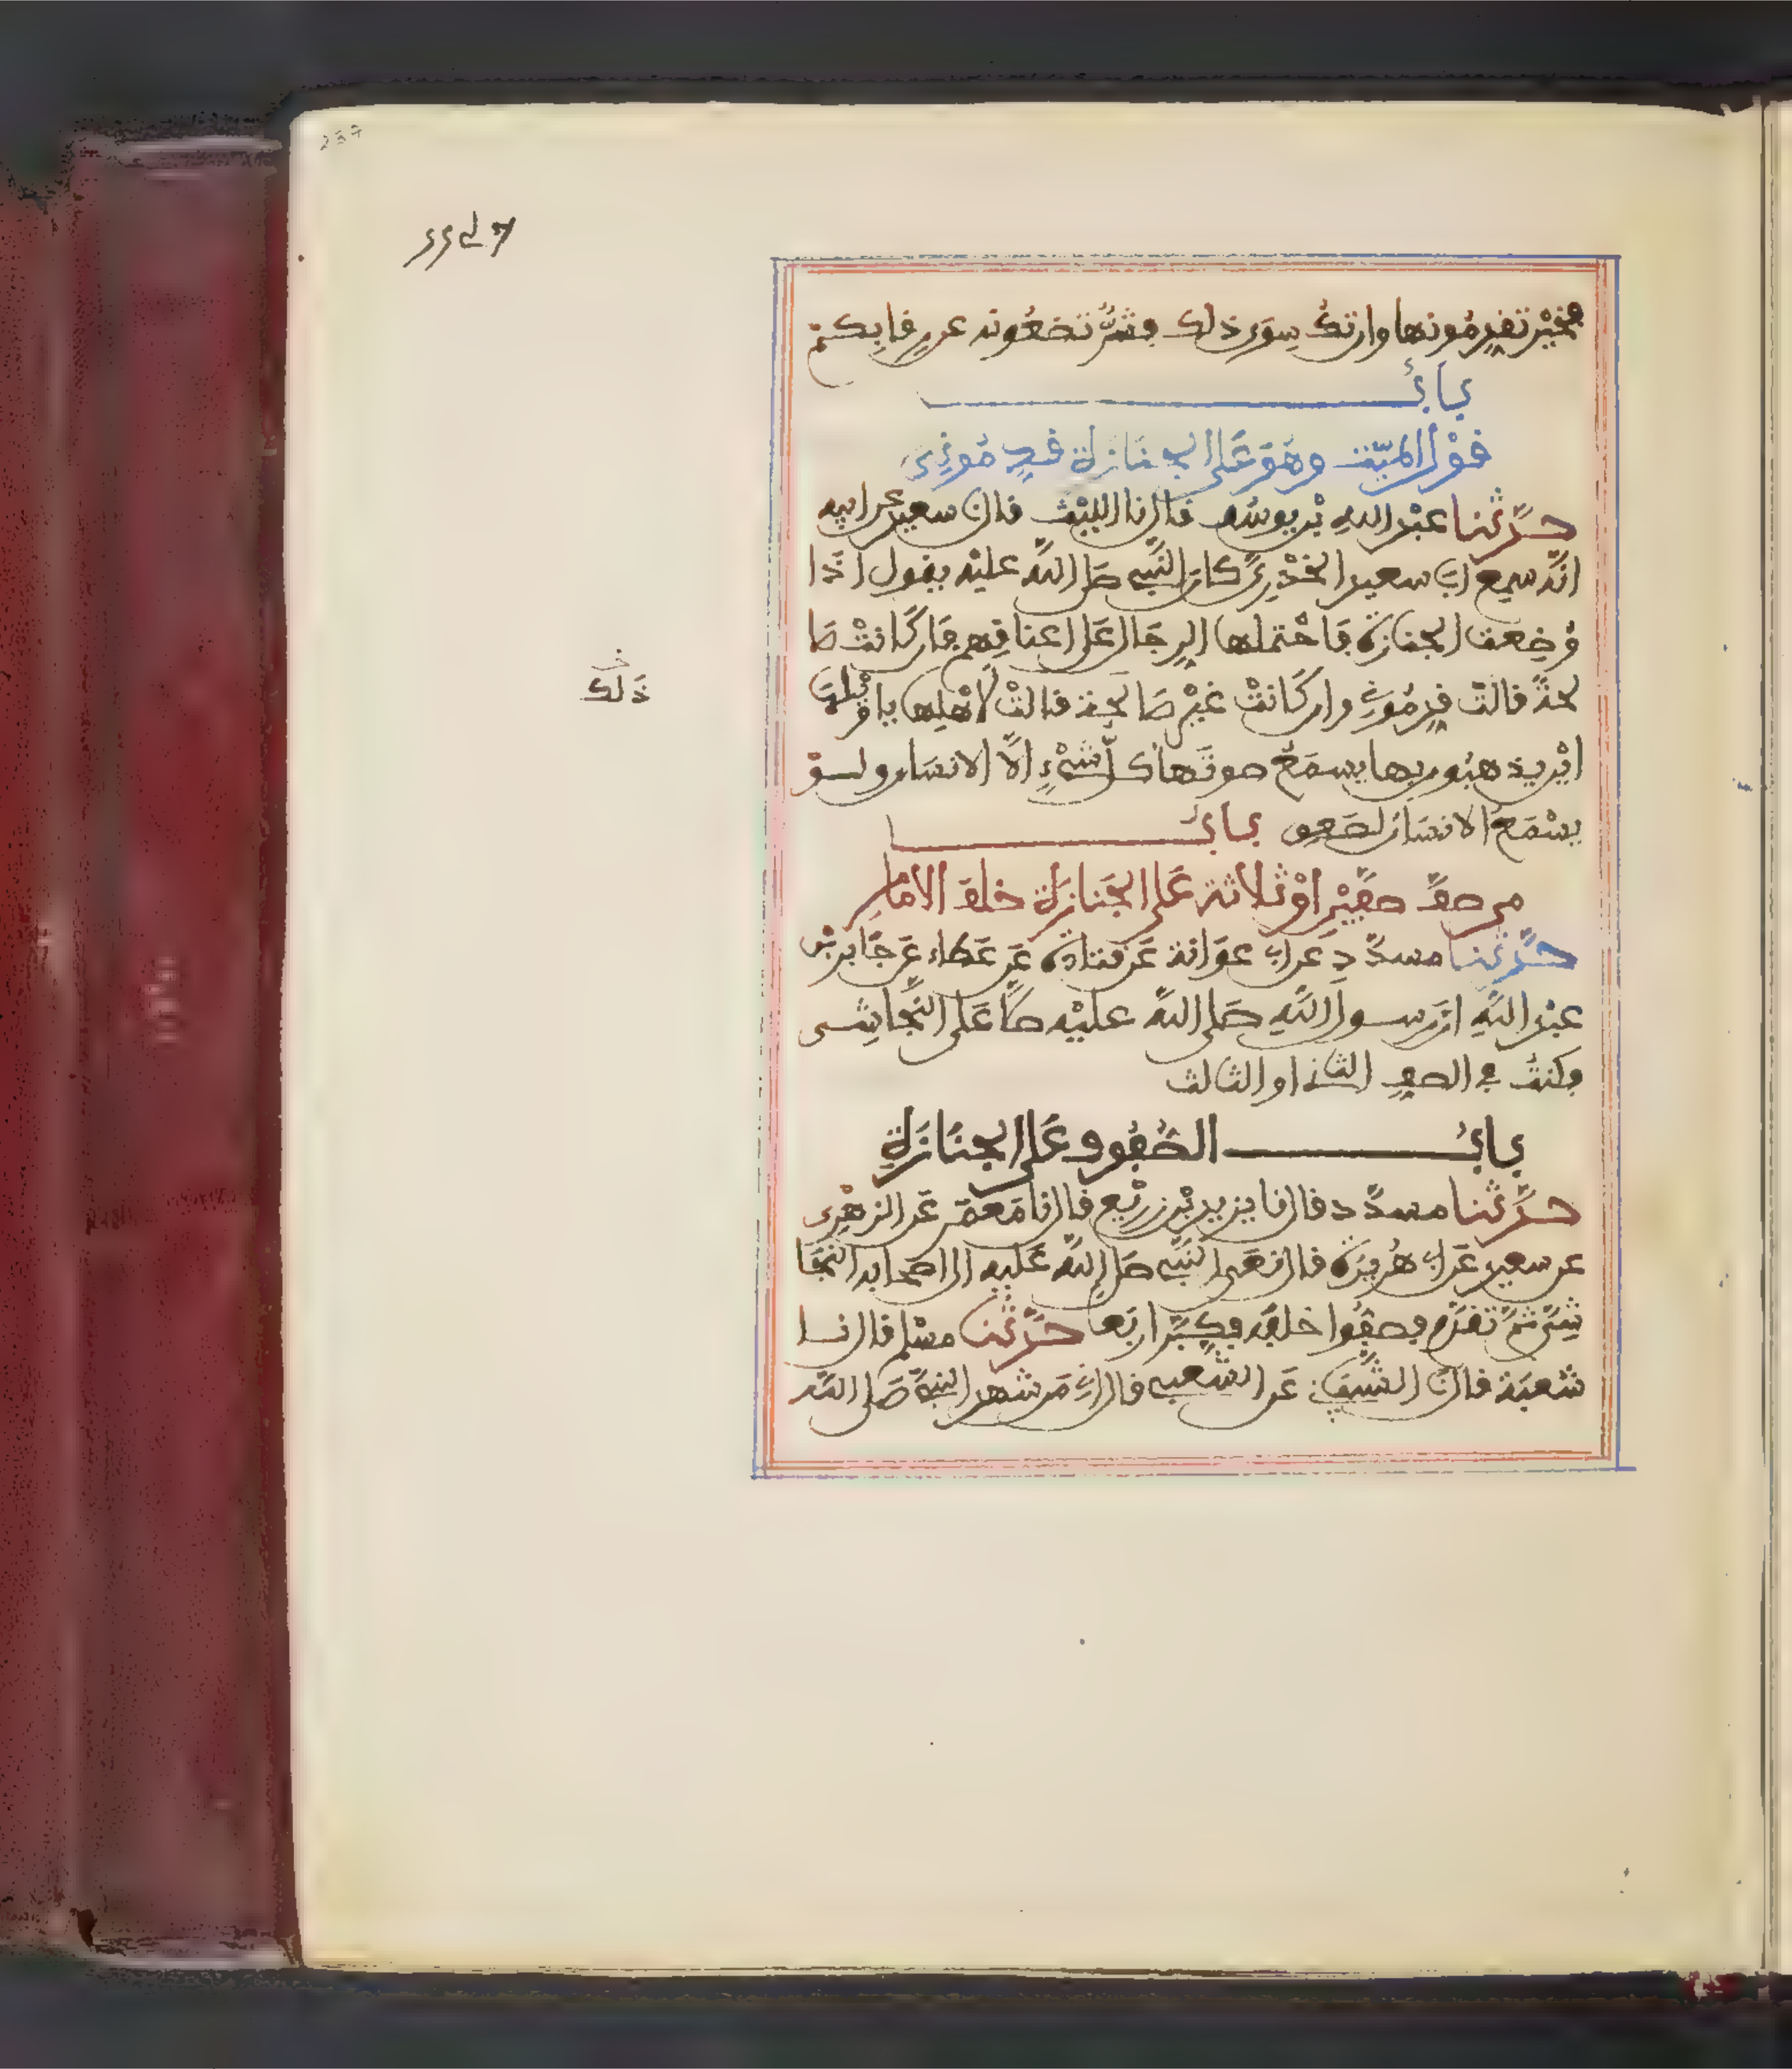 فخير تقدمونها وان تك سوى ذلك فشر تضعونه عن رقابكم
باب
قول الميت وهو على الجنازة قدموني
حدثنا عبد الله بن يوسف قال نا الليث قال نا سعيد عن ابيه
انه سمع ابا سعيد الخدري كان النبي صلى الله عليه يقول اذا
وضعت الجنازة فاحتملها الرجال على اعناقهم فان كانت صا
لحة قالت قدموني وان كانت غير صالحة قالت لاهلها يا ويلها
اين يذهبون بها يسمع صوتها كل شيء الا الانسان ولو
يسمع الانسان لصعق باب
من صف صفين او ثلاثة على الجنازة خلف الامام
حدثنا مسدد عن ابي عوانة عن قتادة عن عطاء عن جابر بن
عبد الله ان رسول الله صلى الله عليه صلى على النجاشي
فكنت في الصف الثاني او الثالث
باب الصفوف على الجنازة
حدثنا مسدد قال نا يزيد بن زريع قال نا معمر عن الزهري
عن سعيد عن ابي هريرة قال نعى النبي صلى الله عليه الى اصحابه النجا
شي ثم تقدم فصفوا خلفه فكبر اربعا حدثنا مسلم قال نا
شعبة قال نا الشيباني عن الشعبي قال اني من شهد النبي صلى الله
ذلك
237